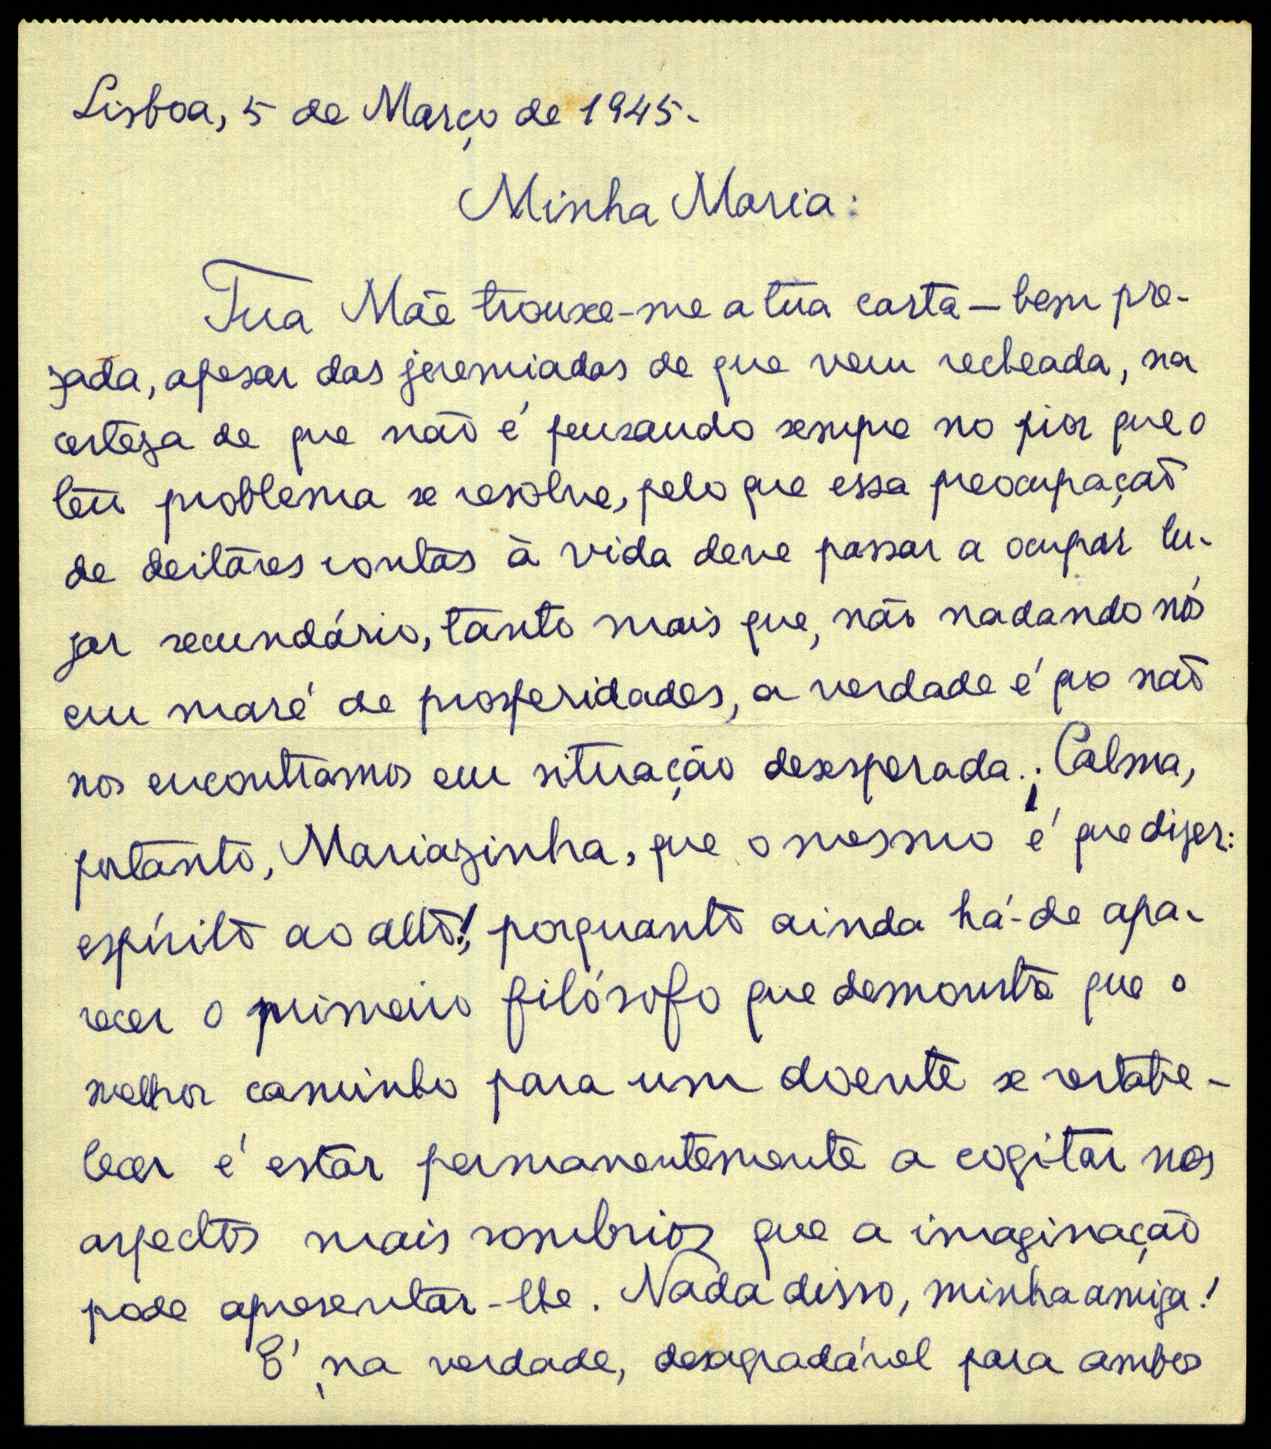 Lisboa, 5 de Março de 1945.
Minha Maria:
Tua Mãe trouxe-me a tua carta — bem pre-
zada, apesar das jeremiadas de que vem recheada, na
certeza de que não é pensando sempre no pior que o
teu problema se resolve, pelo que essa preocupação
de deitares contas à vida deve passar a ocupar lu-
gar secundário, tanto mais que, não nadando nós
em maré de prosperidades, a verdade é que não
nos encontramos em situação desesperada. ¡Calma,
portanto, Mariazinha, que o mesmo é que dizer:
espírito ao alto!, porquanto ainda há-de apa-
recer o primeiro filósofo que demonstre que o
melhor caminho para um doente se restabe-
lecer é estar permanentemente a cogitar nos
aspectos mais sombrios que a imaginação
pode apresentar-lhe. Nada disso, minha amiga!
É, na verdade, desagradável para ambos